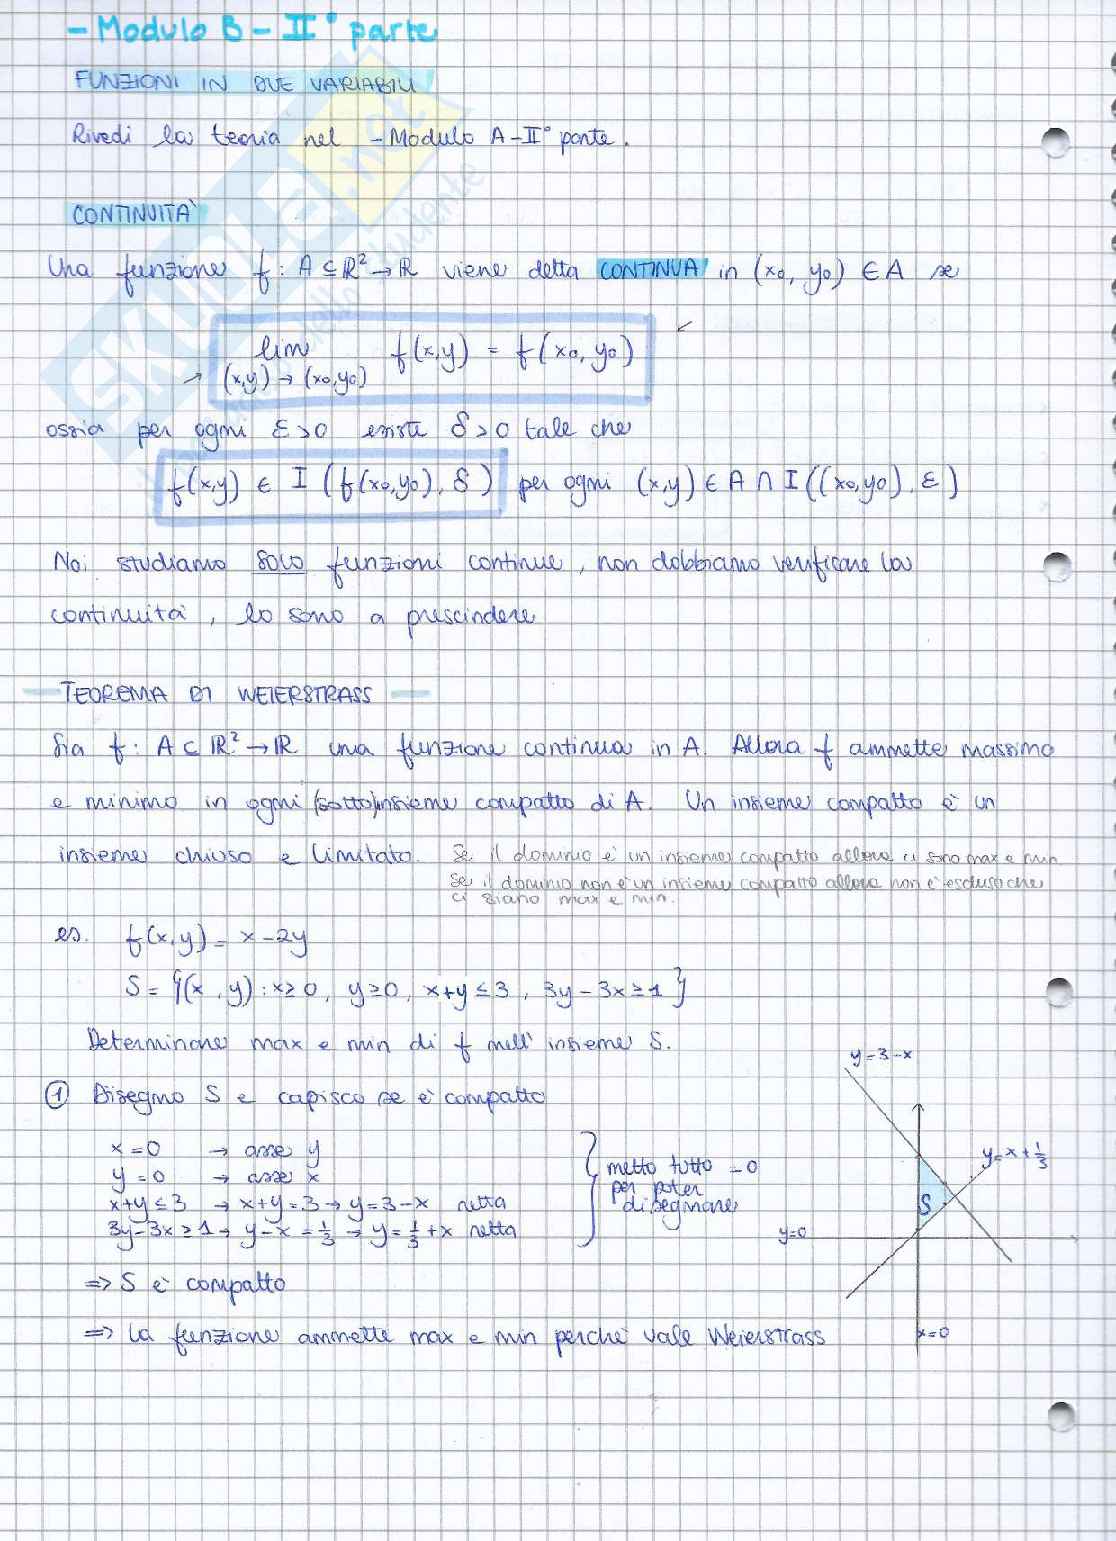 - Modulo B - II° parte
FUNZIONI IN DUE VARIABILI
Rivedi la teoria nel - Modulo A - II° parte.
CONTINUITÀ
Una funzione f: A ⊆ ℝ² → ℝ viene detta CONTINUA in (x₀, y₀) ∈ A se
lim f(x,y) = f(x₀, y₀)
(x,y) → (x₀,y₀)
ossia per ogni ε>0 esiste δ>0 tale che
f(x,y) ∈ I (f(x₀,y₀), δ) per ogni (x,y) ∈ A ∩ I((x₀,y₀), ε)
Noi studiamo SOLO funzioni continue, non dobbiamo verificare la
continuità, lo sono a prescindere
TEOREMA DI WEIERSTRASS
Sia f: A ⊂ ℝ² → ℝ una funzione continua in A. Allora f ammette massimo
e minimo in ogni (sotto)insieme compatto di A. Un insieme compatto è un
insieme chiuso e limitato. Se il dominio è un insieme compatto allora ci sono max e min
Se il dominio non è un insieme compatto allora non è escluso che
ci siano max e min.
es. f(x,y) = x - 2y
S = {(x,y): x≥0, y≥0, x+y≤3, 3y-3x≥1}
Determinare max e min di f nell'insieme S.
① Disegno S e capisco se è compatto
x=0 → asse y
y=0 → asse x
x+y≤3 → x+y=3 → y=3-x retta
3y-3x≥1 → y-x=⅓ → y=⅓+x retta
metto tutto =0
per poter
disegnare
y=3-x
y=x+⅓
S
y=0
x=0
⇒ S è compatto
⇒ la funzione ammette max e min perchè vale Weierstrass
SKUOLA.net